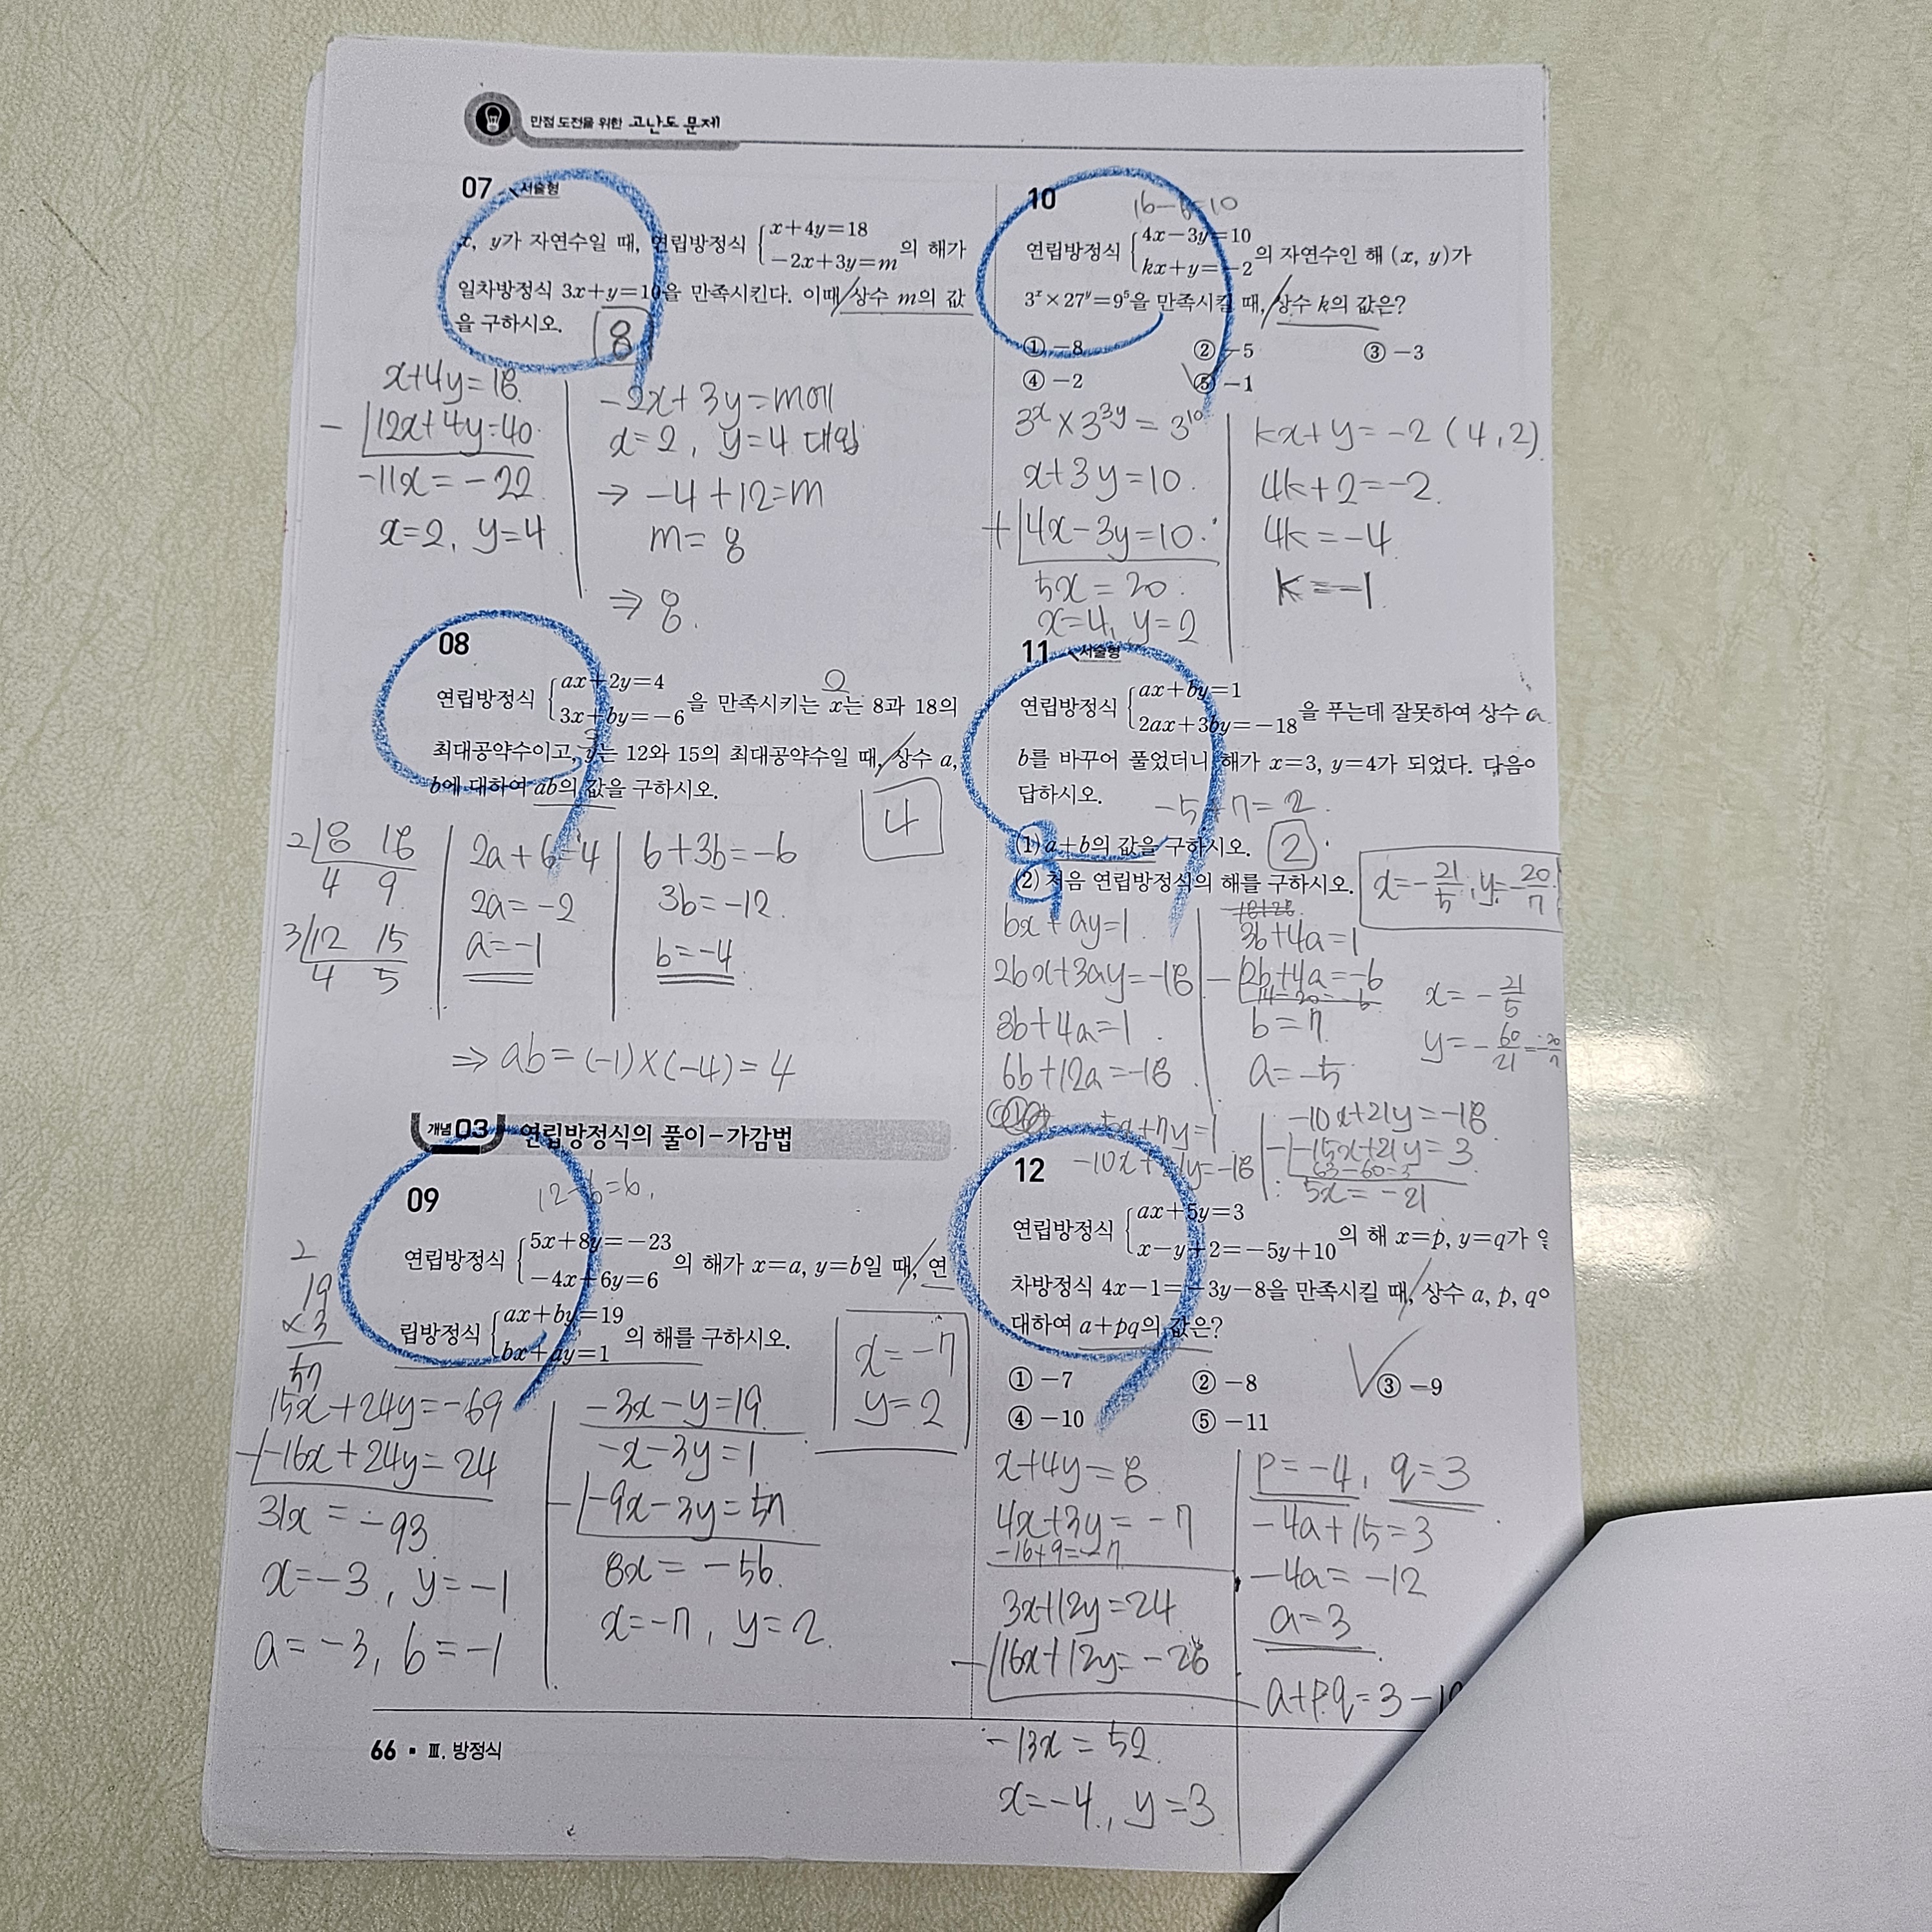 만점 도전을 위한 고난도 문제
07 서술형
x, y가 자연수일 때, 연립방정식 {x+4y=18
-2x+3y=m 의 해가
일차방정식 3x+y=10을 만족시킨다. 이때 상수 m의 값
을 구하시오.
8
x+4y=18
- 12x+4y=40
-11x=-22
x=2, y=4
-2x+3y=m에
x=2, y=4 대입
→ -4+12=m
m=8
⇒ 8
08
연립방정식 {ax+2y=4
3x+by=-6 을 만족시키는 x는 8과 18의
최대공약수이고, y는 12와 15의 최대공약수일 때, 상수 a,
b에 대하여 ab의 값을 구하시오.
4
2 8 18
4 9
3 12 15
4 5
2a+6=4
2a=-2
a=-1
6+3b=-6
3b=-12
b=-4
⇒ ab=(-1)×(-4)=4
개념 03 연립방정식의 풀이-가감법
09
12-6=6
연립방정식 {5x+8y=-23
-4x+6y=6 의 해가 x=a, y=b일 때, 연
립방정식 {ax+by=19
bx+ay=1 의 해를 구하시오.
x=-7
y=2
2
19
×3
57
15x+24y=-69
- -16x+24y=24
31x=-93
x=-3, y=-1
a=-3, b=-1
-3x-y=19
-x-3y=1
- -9x-3y=57
8x=-56
x=-7, y=2
66 ▪ Ⅲ. 방정식
10
16-6=10
연립방정식 {4x-3y=10
kx+y=-2 의 자연수인 해 (x, y)가
3ˣ×27ʸ=9⁵을 만족시킬 때, 상수 k의 값은?
① -8 ② -5 ③ -3
④ -2 ⑤ -1
3ˣ×3³ʸ=3¹⁰
x+3y=10
+ 4x-3y=10
5x=20
x=4, y=2
kx+y=-2 (4,2)
4k+2=-2
4k=-4
k=-1
11 서술형
연립방정식 {ax+by=1
2ax+3by=-18 을 푸는데 잘못하여 상수 a
b를 바꾸어 풀었더니 해가 x=3, y=4가 되었다. 다음
답하시오.
-5+7=2
(1) a+b의 값을 구하시오. 2
(2) 처음 연립방정식의 해를 구하시오.
x=-21/5, y=-20/7
bx+ay=1
2bx+3ay=-18
3b+4a=1
6b+12a=-18
3b+4a=1
- 2b+4a=-6
b=7
a=-5
x=-21/5
y=-60/21=-20/7
-5x+7y=1
-10x+21y=-18
-10x+21y=-18
- -15x+21y=3
63-60=3
5x=-21
12
연립방정식 {ax+5y=3
x-y+2=-5y+10 의 해 x=p, y=q가
차방정식 4x-1=-3y-8을 만족시킬 때, 상수 a, p, q
대하여 a+pq의 값은?
① -7 ② -8 ③ -9
④ -10 ⑤ -11
x+4y=8
4x+3y=-7
-16+9=-7
3x+12y=24
- 16x+12y=-28
-13x=52
x=-4, y=3
p=-4, q=3
-4a+15=3
-4a=-12
a=3
a+pq=3-